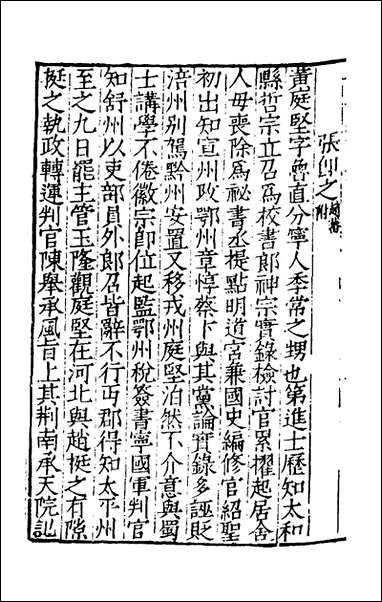 張即之趙蕃附
黃庭堅字魯直分寧人李常之甥也第進士歷知太和
縣哲宗立召爲校書郎神宗實錄檢討官累擢起居舍
人毋喪除爲祕書丞提點明道宮兼國史編修官紹聖
初出知宣州改鄂州章惇蔡卞與其黨論實錄多誣貶
涪州別駕黔州安置又移戎州庭堅泊然不介意與蜀
士講學不倦徽宗即位起監鄂州稅簽書寧國軍判官
知舒州以吏部員外郎召皆辭不行丐郡得知太平州
至之九日罷主管玉隆觀庭堅在河北與趙挺之有隙
挺之執政轉運判官陳舉承風旨上其荆南承天院記